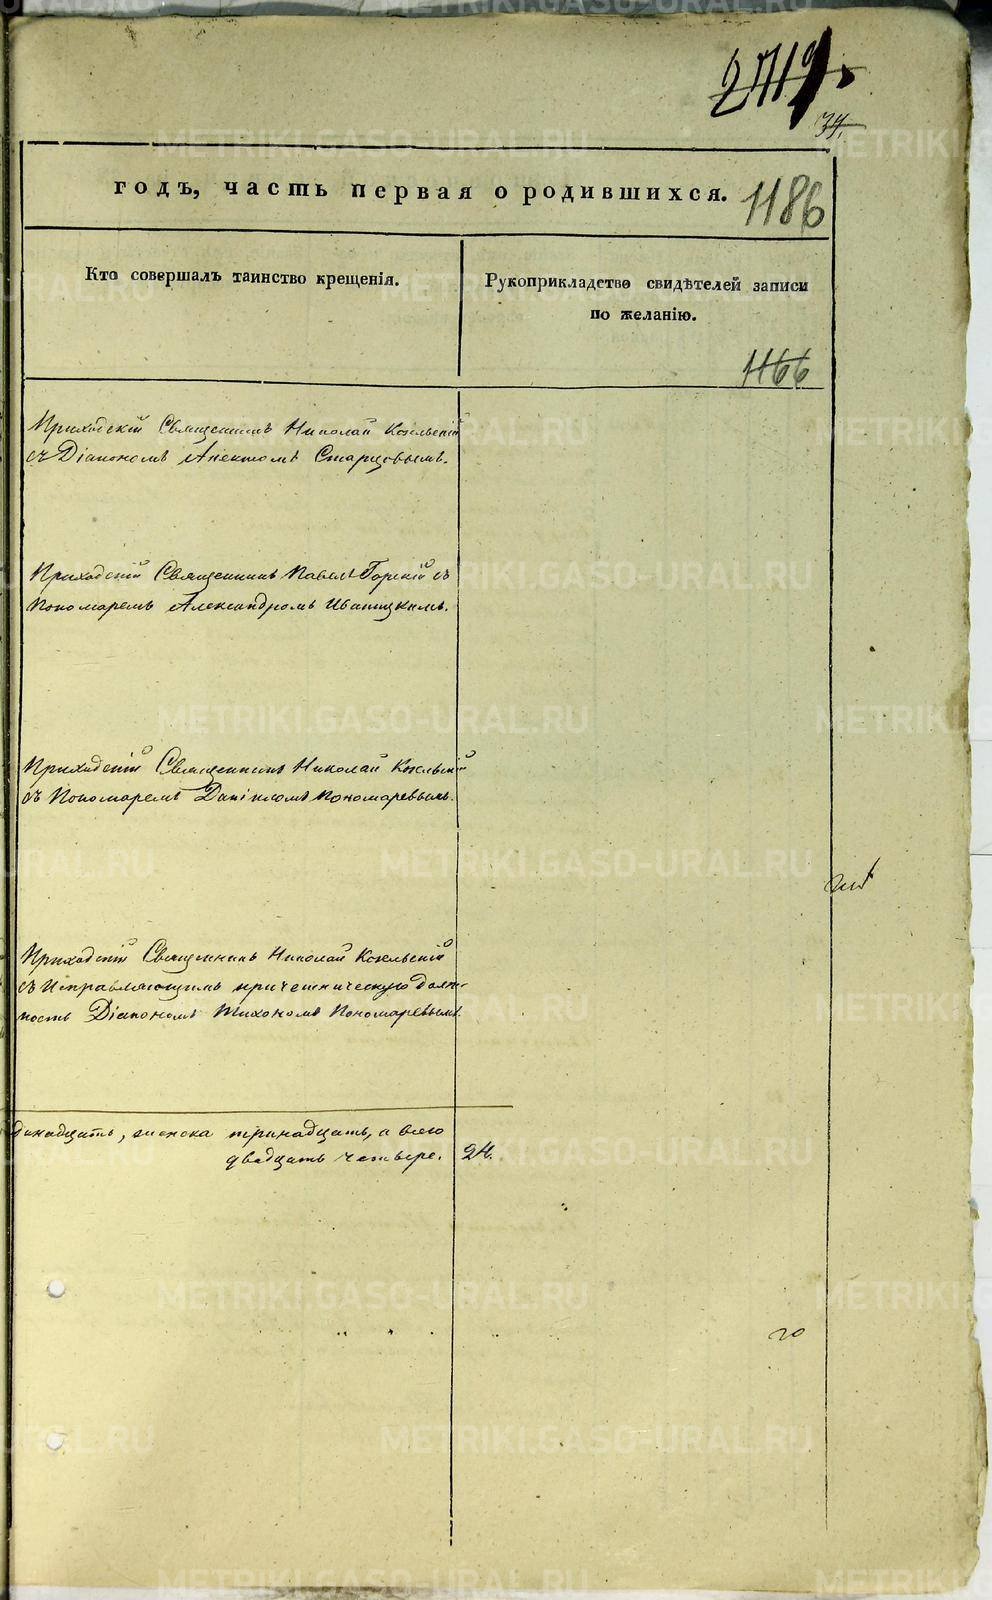 34.
годъ, часть первая о родившихся. 1186
Кто совершалъ таинство крещенія.
Рукоприкладство свидѣтелей записи
по желанію.
1166
Приходскій Священникъ Николай Козельскій
съ Діакономъ Анектомъ Старцовымъ.
Приходскій Священникъ Павелъ Горскій съ
Пономаремъ Александромъ Ивацкимъ.
Приходскій Священникъ Николай Козельскій
съ Пономаремъ Даніиломъ Пономаревымъ.
Приходскій Священникъ Николай Козельскій
съ Исправляющимъ причетническую долж-
ность Діакономъ Тихономъ Пономаревымъ.
динадцать, женска тринадцать, а всего
двадцать четыре. 24.
METRIKI.GASO-URAL.RU